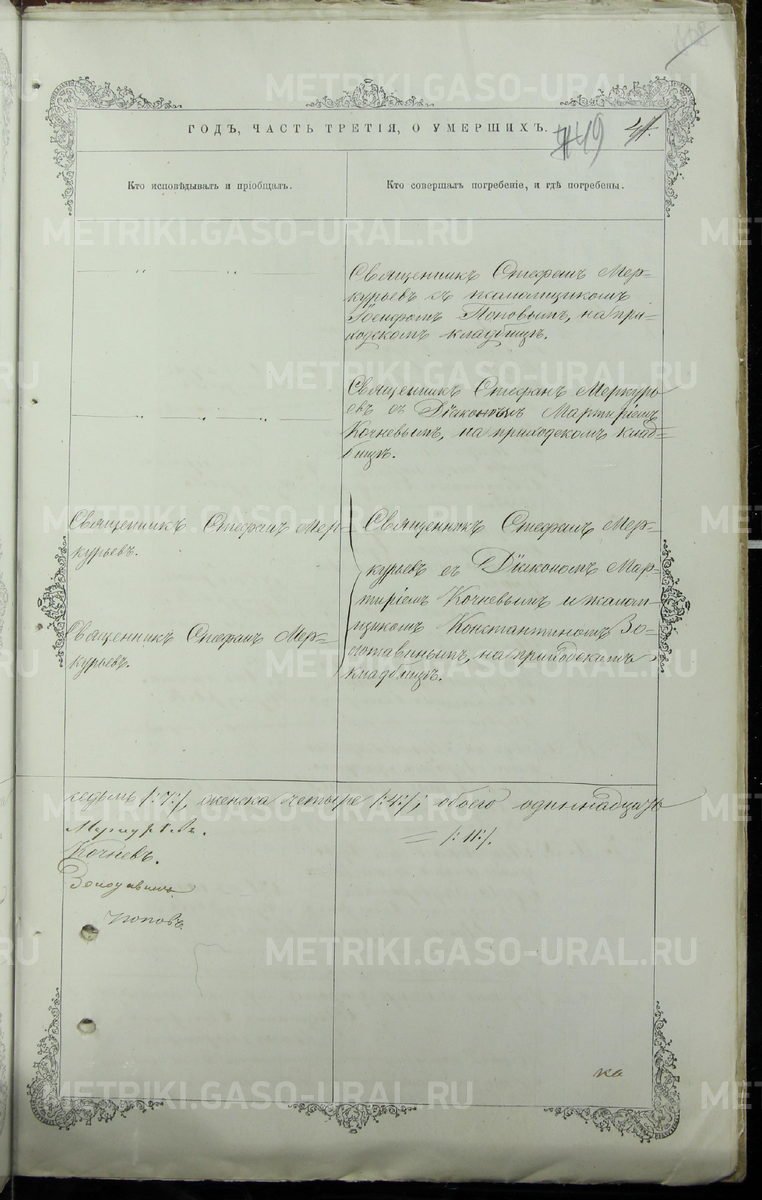 108
ГОДЪ, ЧАСТЬ ТРЕТІЯ, О УМЕРШИХЪ.
49
Кто исповѣдывалъ и пріобщалъ.
Кто совершалъ погребеніе, и гдѣ погребены.
Священникъ Стефанъ Мер-
курьевъ съ псаломщикомъ
Іосифомъ Поповымъ, на при-
ходскомъ кладбищѣ.
Священникъ Стефанъ Меркурь
евъ съ Діакономъ Мартиріемъ
Кочневымъ, на приходскомъ клад-
бищѣ.
Священникъ Стефанъ Мер-
курьевъ.
Священникъ Стефанъ Мер-
курьевъ съ Діакономъ Мар-
тиріемъ Кочневымъ и псалом-
щикомъ Константиномъ Зо-
лотавинымъ, на приходскомъ
кладбищѣ.
Священникъ Стефанъ Мер-
курьевъ.
седьмь /:7:/, женска четыре /:4:/; обоего одиннадцать
= /:11:/.
Меркурьевъ.
Кочневъ.
Золотавинъ
Поповъ
METRIKI.GASO-URAL.RU